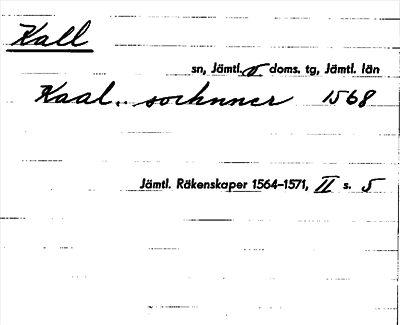 Kall
sn, Jämtl. v doms. tg, Jämtl. län
Kaal.. sochnner 1568
Jämtl. Räkenskaper 1564–1571, II s. 5